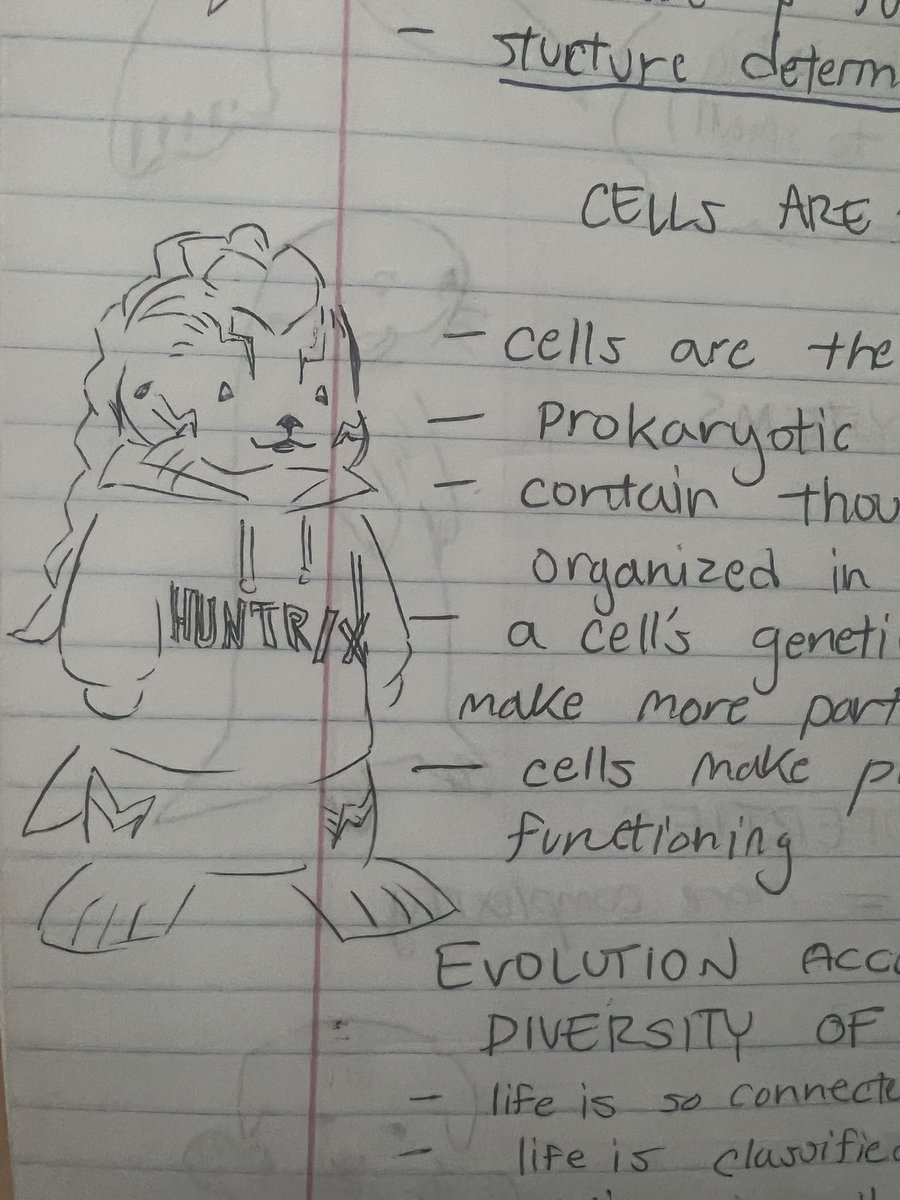 - stucture determ
CELLS ARE
- cells are the
- Prokaryotic
- contain thou
organized in
- a cell's geneti
make more part
- cells make p
functioning
HUNTR/X
EVOLUTION ACCO
DIVERSITY OF
- life is so connecte
- life is classified